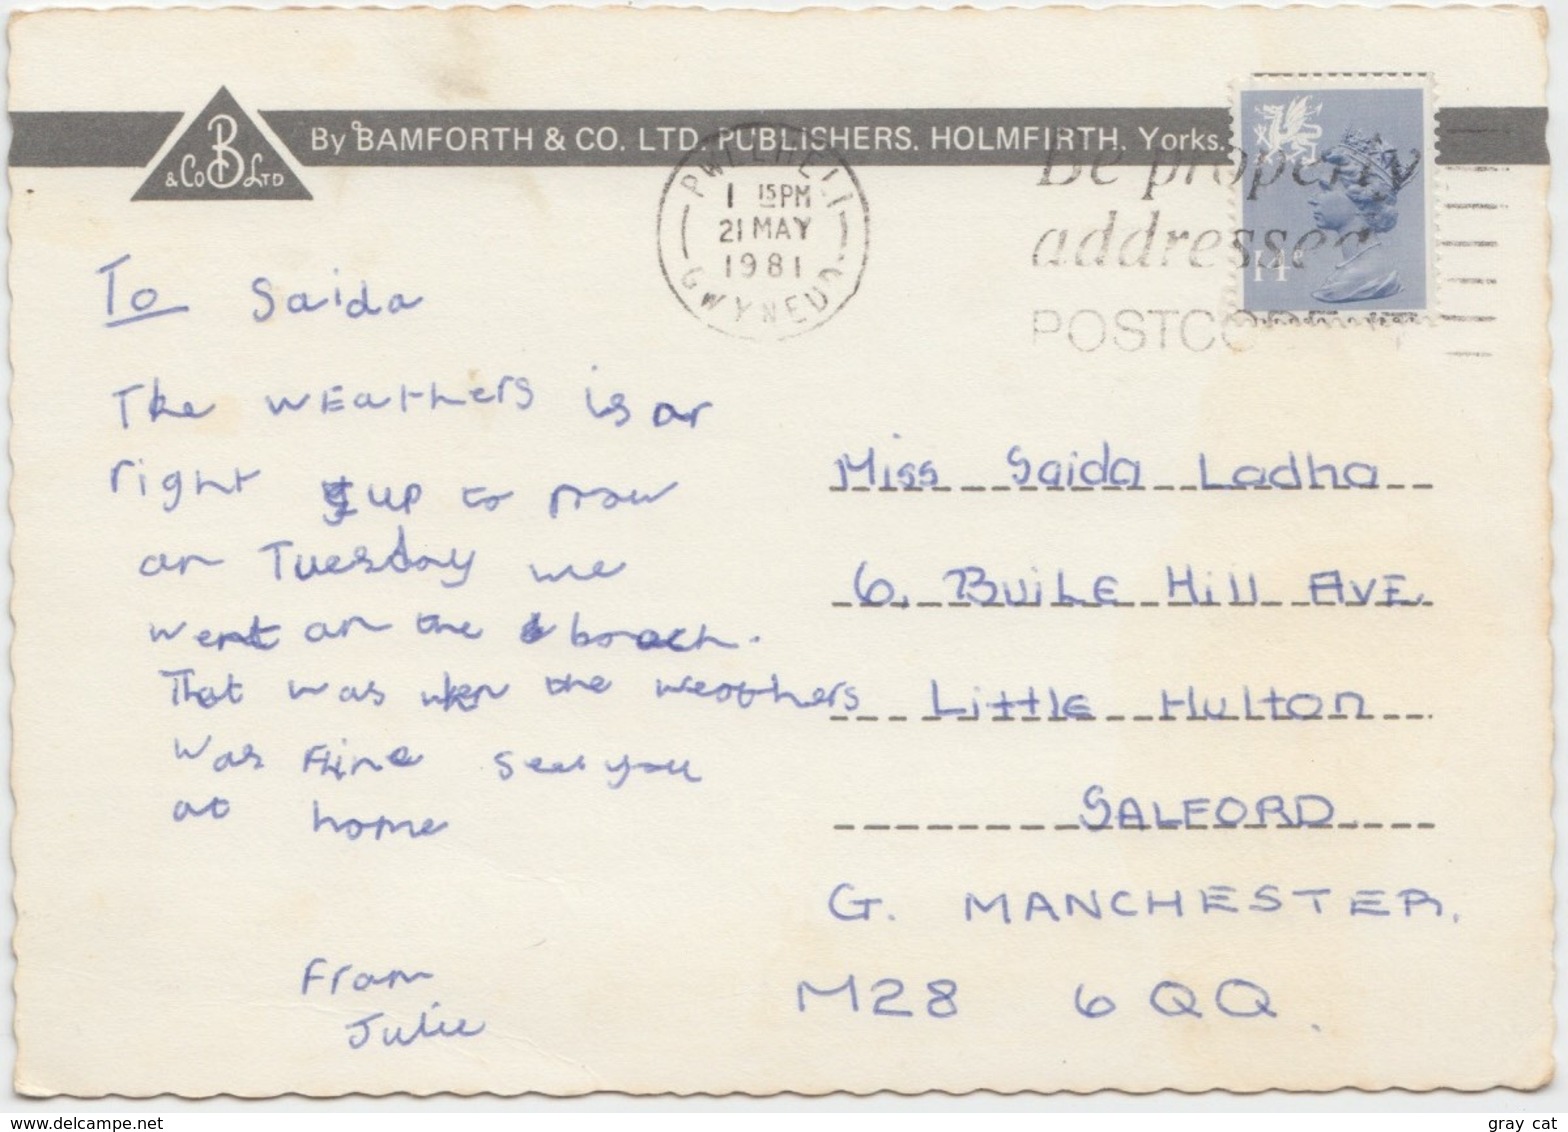 By BAMFORTH & CO. LTD. PUBLISHERS. HOLMFIRTH. Yorks.
B
& Co LTD
PWLLHELI
1 15PM
21 MAY
1981
GWYNEDD
Be properly
addressed
POSTCO
To Saida
The weathers is or
right up to now
on Tuesday we
went on the beach.
That was when the weathers
was fine see you
at home
From
Julie
Miss Saida Ladha
6, Buile Hill Ave
Little Hulton
SALFORD
G. MANCHESTER.
M28 6QQ.
www.delcampe.net
gray cat